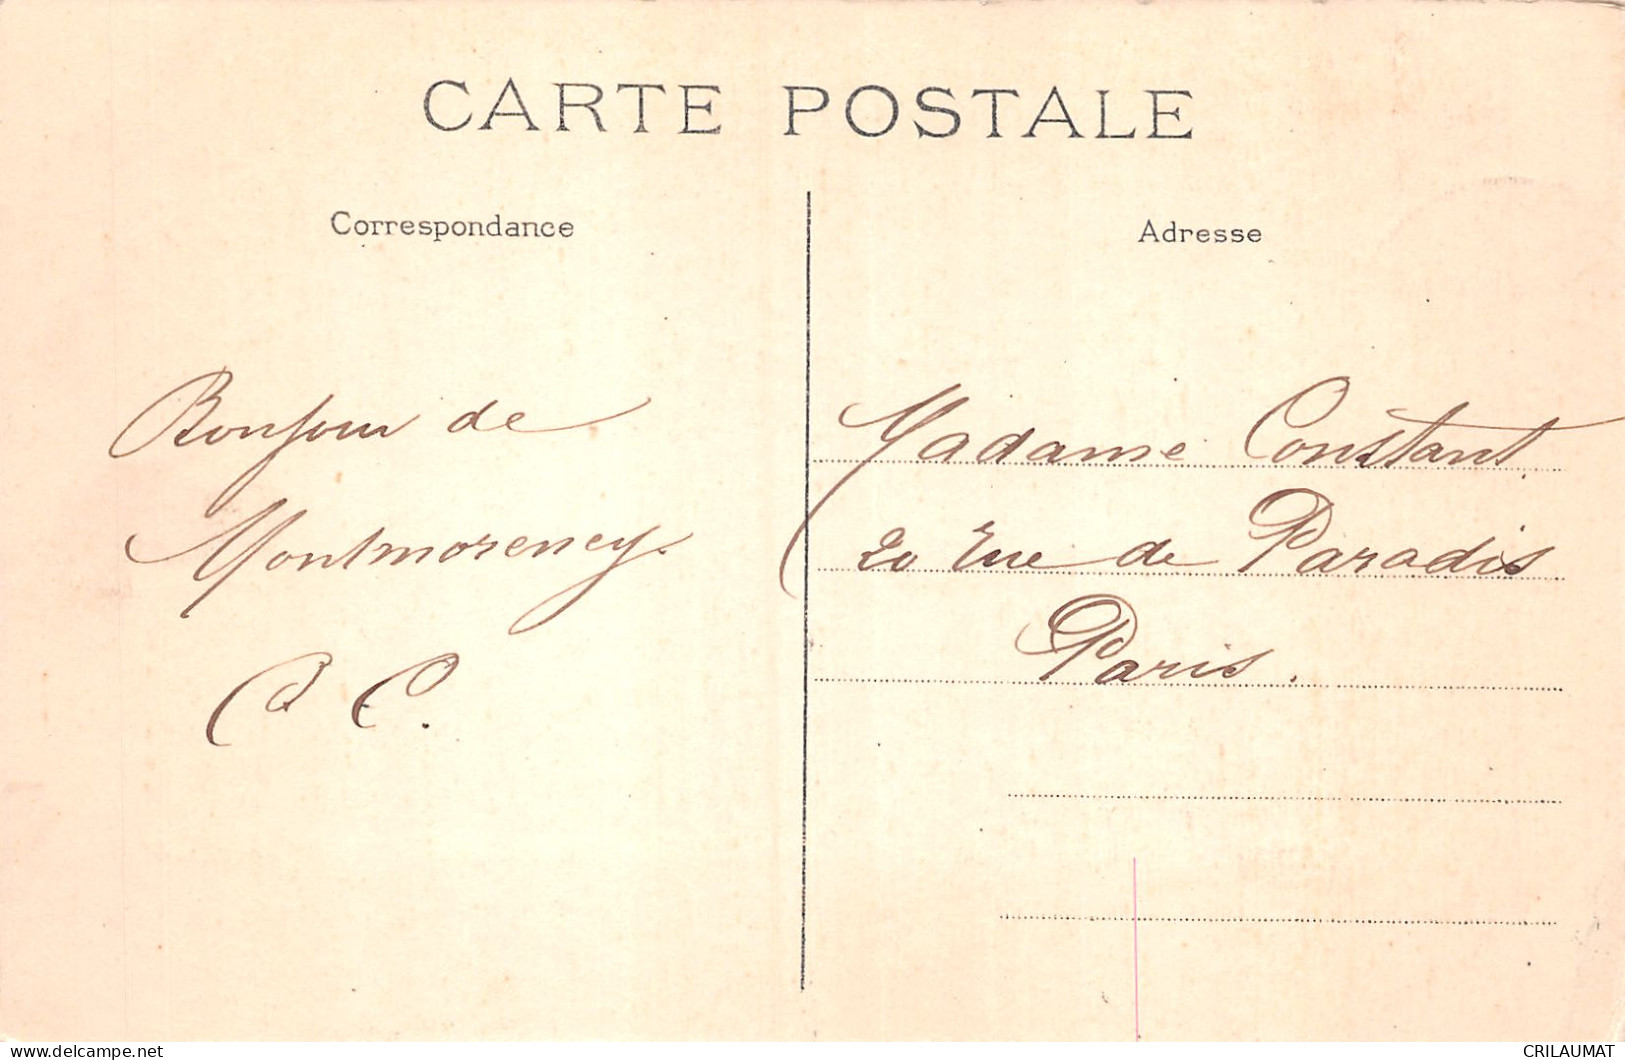 CARTE POSTALE
Correspondance
Adresse
Bonjour de
Montmorency.
C C.
Madame Constant
20 Rue de Paradis
Paris.
delcampe.net
CRILAUMAT